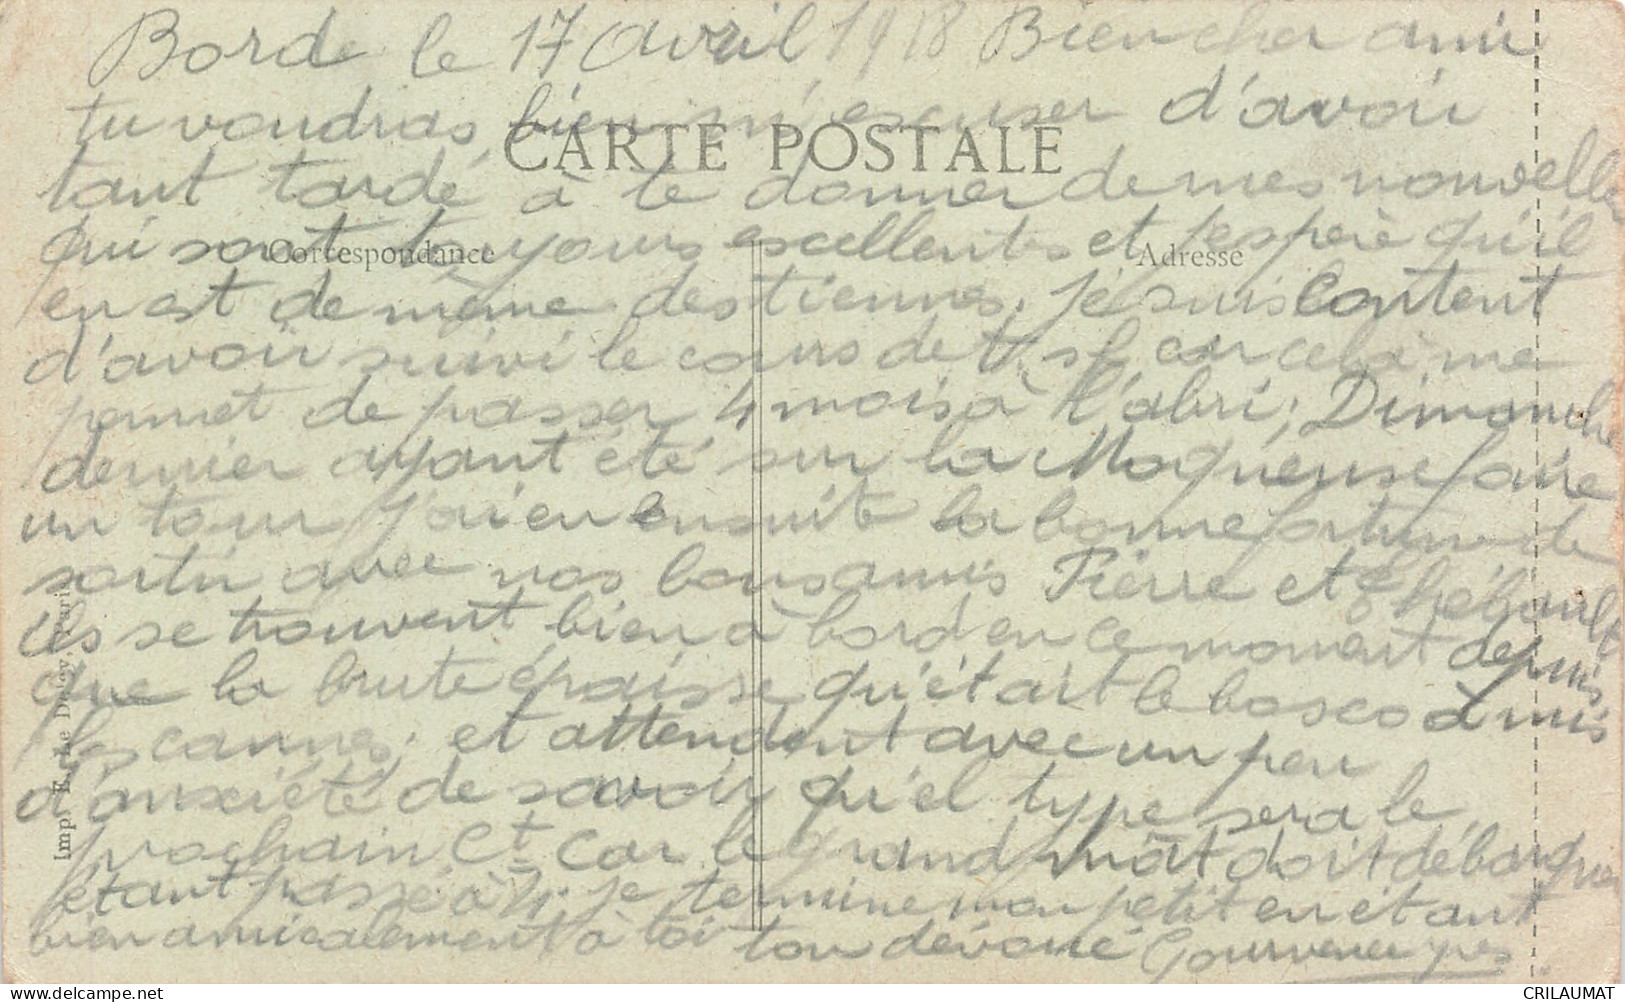 Borde le 17 Avril 1918 Bien cher ami
tu voudras bien m'excuser d'avoir
CARTE POSTALE
tant tardé à te donner de mes nouvelles
qui sont toujours excellentes et j'espère qu'il
Correspondance
Adresse
en est de même des tiennes. Je suis content
d'avoir suivi le cours de t. s. f. car cela me
permet de passer 4 mois à l'abri; Dimanche
dernier ayant été sur la Moqueuse faire
un tour j'ai eu ensuite la bonne fortune de
sortir avec nos bons amis Pierre et Thébault
ils se trouvent bien à bord en ce moment depuis
que la brute épaisse qu'était le bosco à mis
les cannes; et attendent avec un peu
d'anxiété de savoir qu'el type sera le
prochain Ct car le grand mât doit débarquer
étant passé à 4. je termine mon petit en étant
bien amicalement à toi ton dévoué Gourvenec yves.
Imp. E. Le Deley, Paris
CRILAUMAT